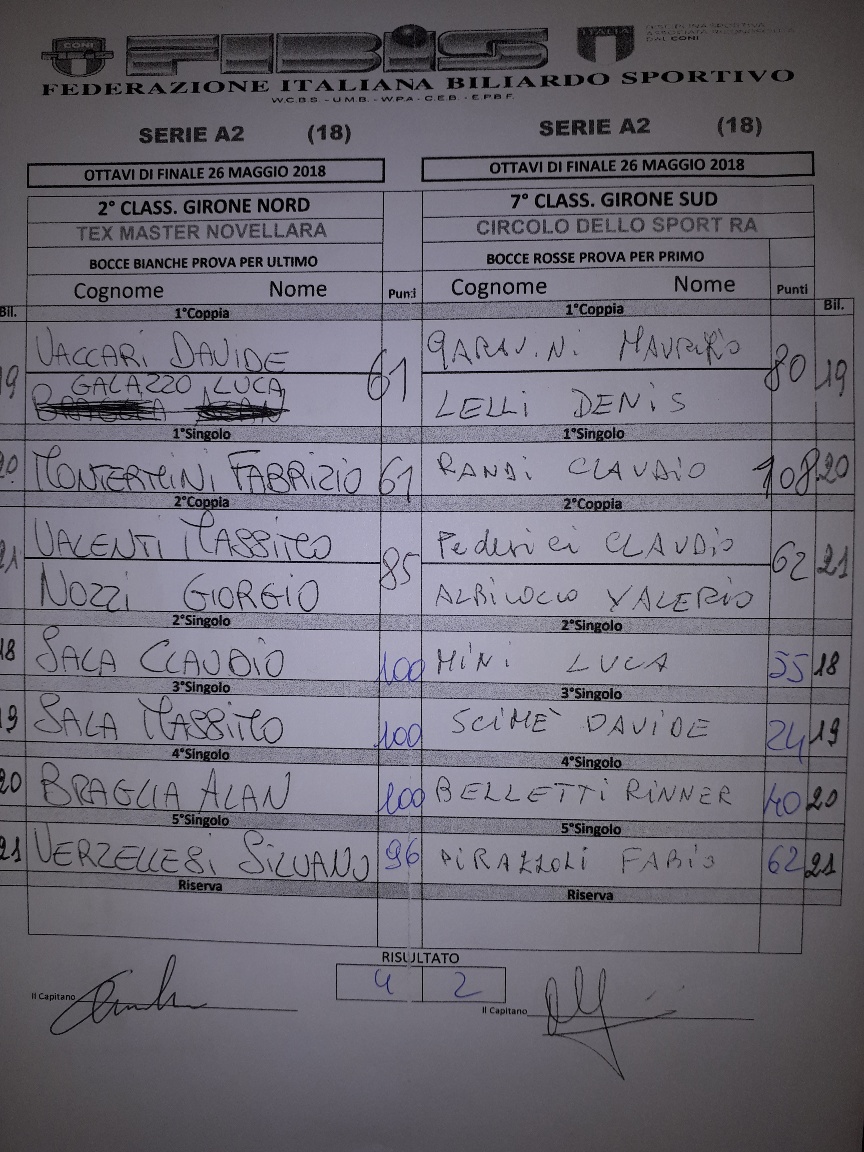 CONI FIBIS ITALIA
FEDERAZIONE ITALIANA BILIARDO SPORTIVO
W.C.B.S. - U.M.B. - W.P.A. - C.E.B. - E.P.B.F.
SERIE A2 (18) SERIE A2 (18)
OTTAVI DI FINALE 26 MAGGIO 2018 OTTAVI DI FINALE 26 MAGGIO 2018
2° CLASS. GIRONE NORD 7° CLASS. GIRONE SUD
TEX MASTER NOVELLARA CIRCOLO DELLO SPORT RA
BOCCE BIANCHE PROVA PER ULTIMO BOCCE ROSSE PROVA PER PRIMO
Cognome Nome Punti Cognome Nome Punti
Bil. 1°Coppia 1°Coppia Bil.
VACCARI DAVIDE GARAVINI MAURIZIO
19 61 80 19
GALAZZO LUCA LELLI DENIS
1°Singolo 1°Singolo
20 MONTERMINI FABRIZIO 61 RANDI CLAUDIO 108 20
2°Coppia 2°Coppia
VALENTI MASSIMO Federici CLAUDIO
21 85 62 21
NOZZI GIORGIO ALBILOCCO VALERIO
2°Singolo 2°Singolo
18 SALA CLAUDIO 100 MINI LUCA 55 18
3°Singolo 3°Singolo
19 SALA MASSIMO 100 SCIMÈ DAVIDE 24 19
4°Singolo 4°Singolo
20 BRAGLIA ALAN 100 BELLETTI RINNER 40 20
5°Singolo 5°Singolo
21 VERZELLESI SILVANO 96 PIRAZZOLI FABIO 62 21
Riserva Riserva
RISULTATO
4 2
Il Capitano Il Capitano